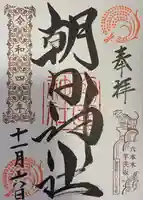 奉拝
朝日神社
令和四
十一月六日
六本木